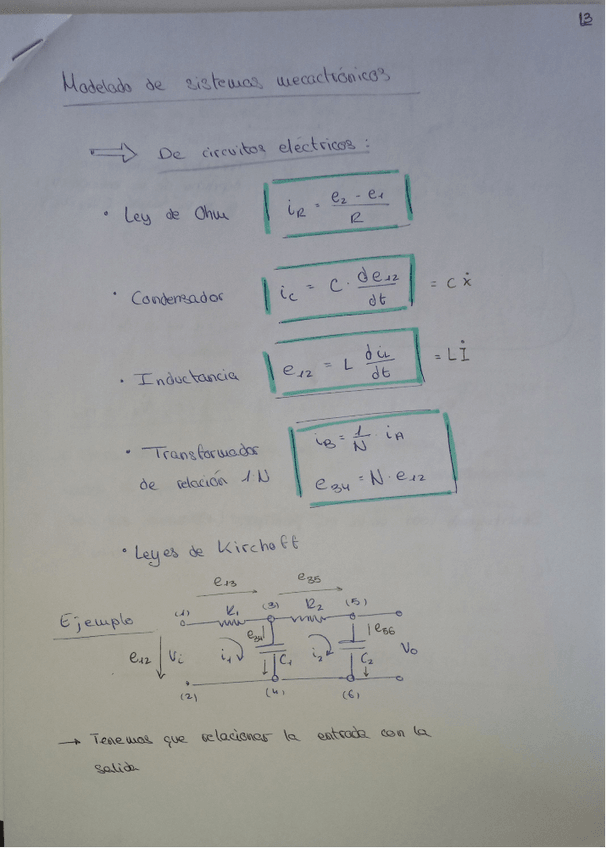 13
Modelado de sistemas mecactrónicos
⇒ De circuitos eléctricos :
• Ley de Ohm iR = e2 - e1 / R
• Condensador ic = C · de12 / dt = C ẋ
• Inductancia e12 = L diL / dt = L İ
• Transformador iB = 1/N · iA
de relación 1:N e34 = N · e12
• Leyes de Kirchoff
e13 e35
Ejemplo (1) R1 (3) R2 (5)
e12 Vi i1 e34 C1 i2 C2 e56 Vo
(2) (4) (6)
→ Tenemos que relacionar la entrada con la
salida